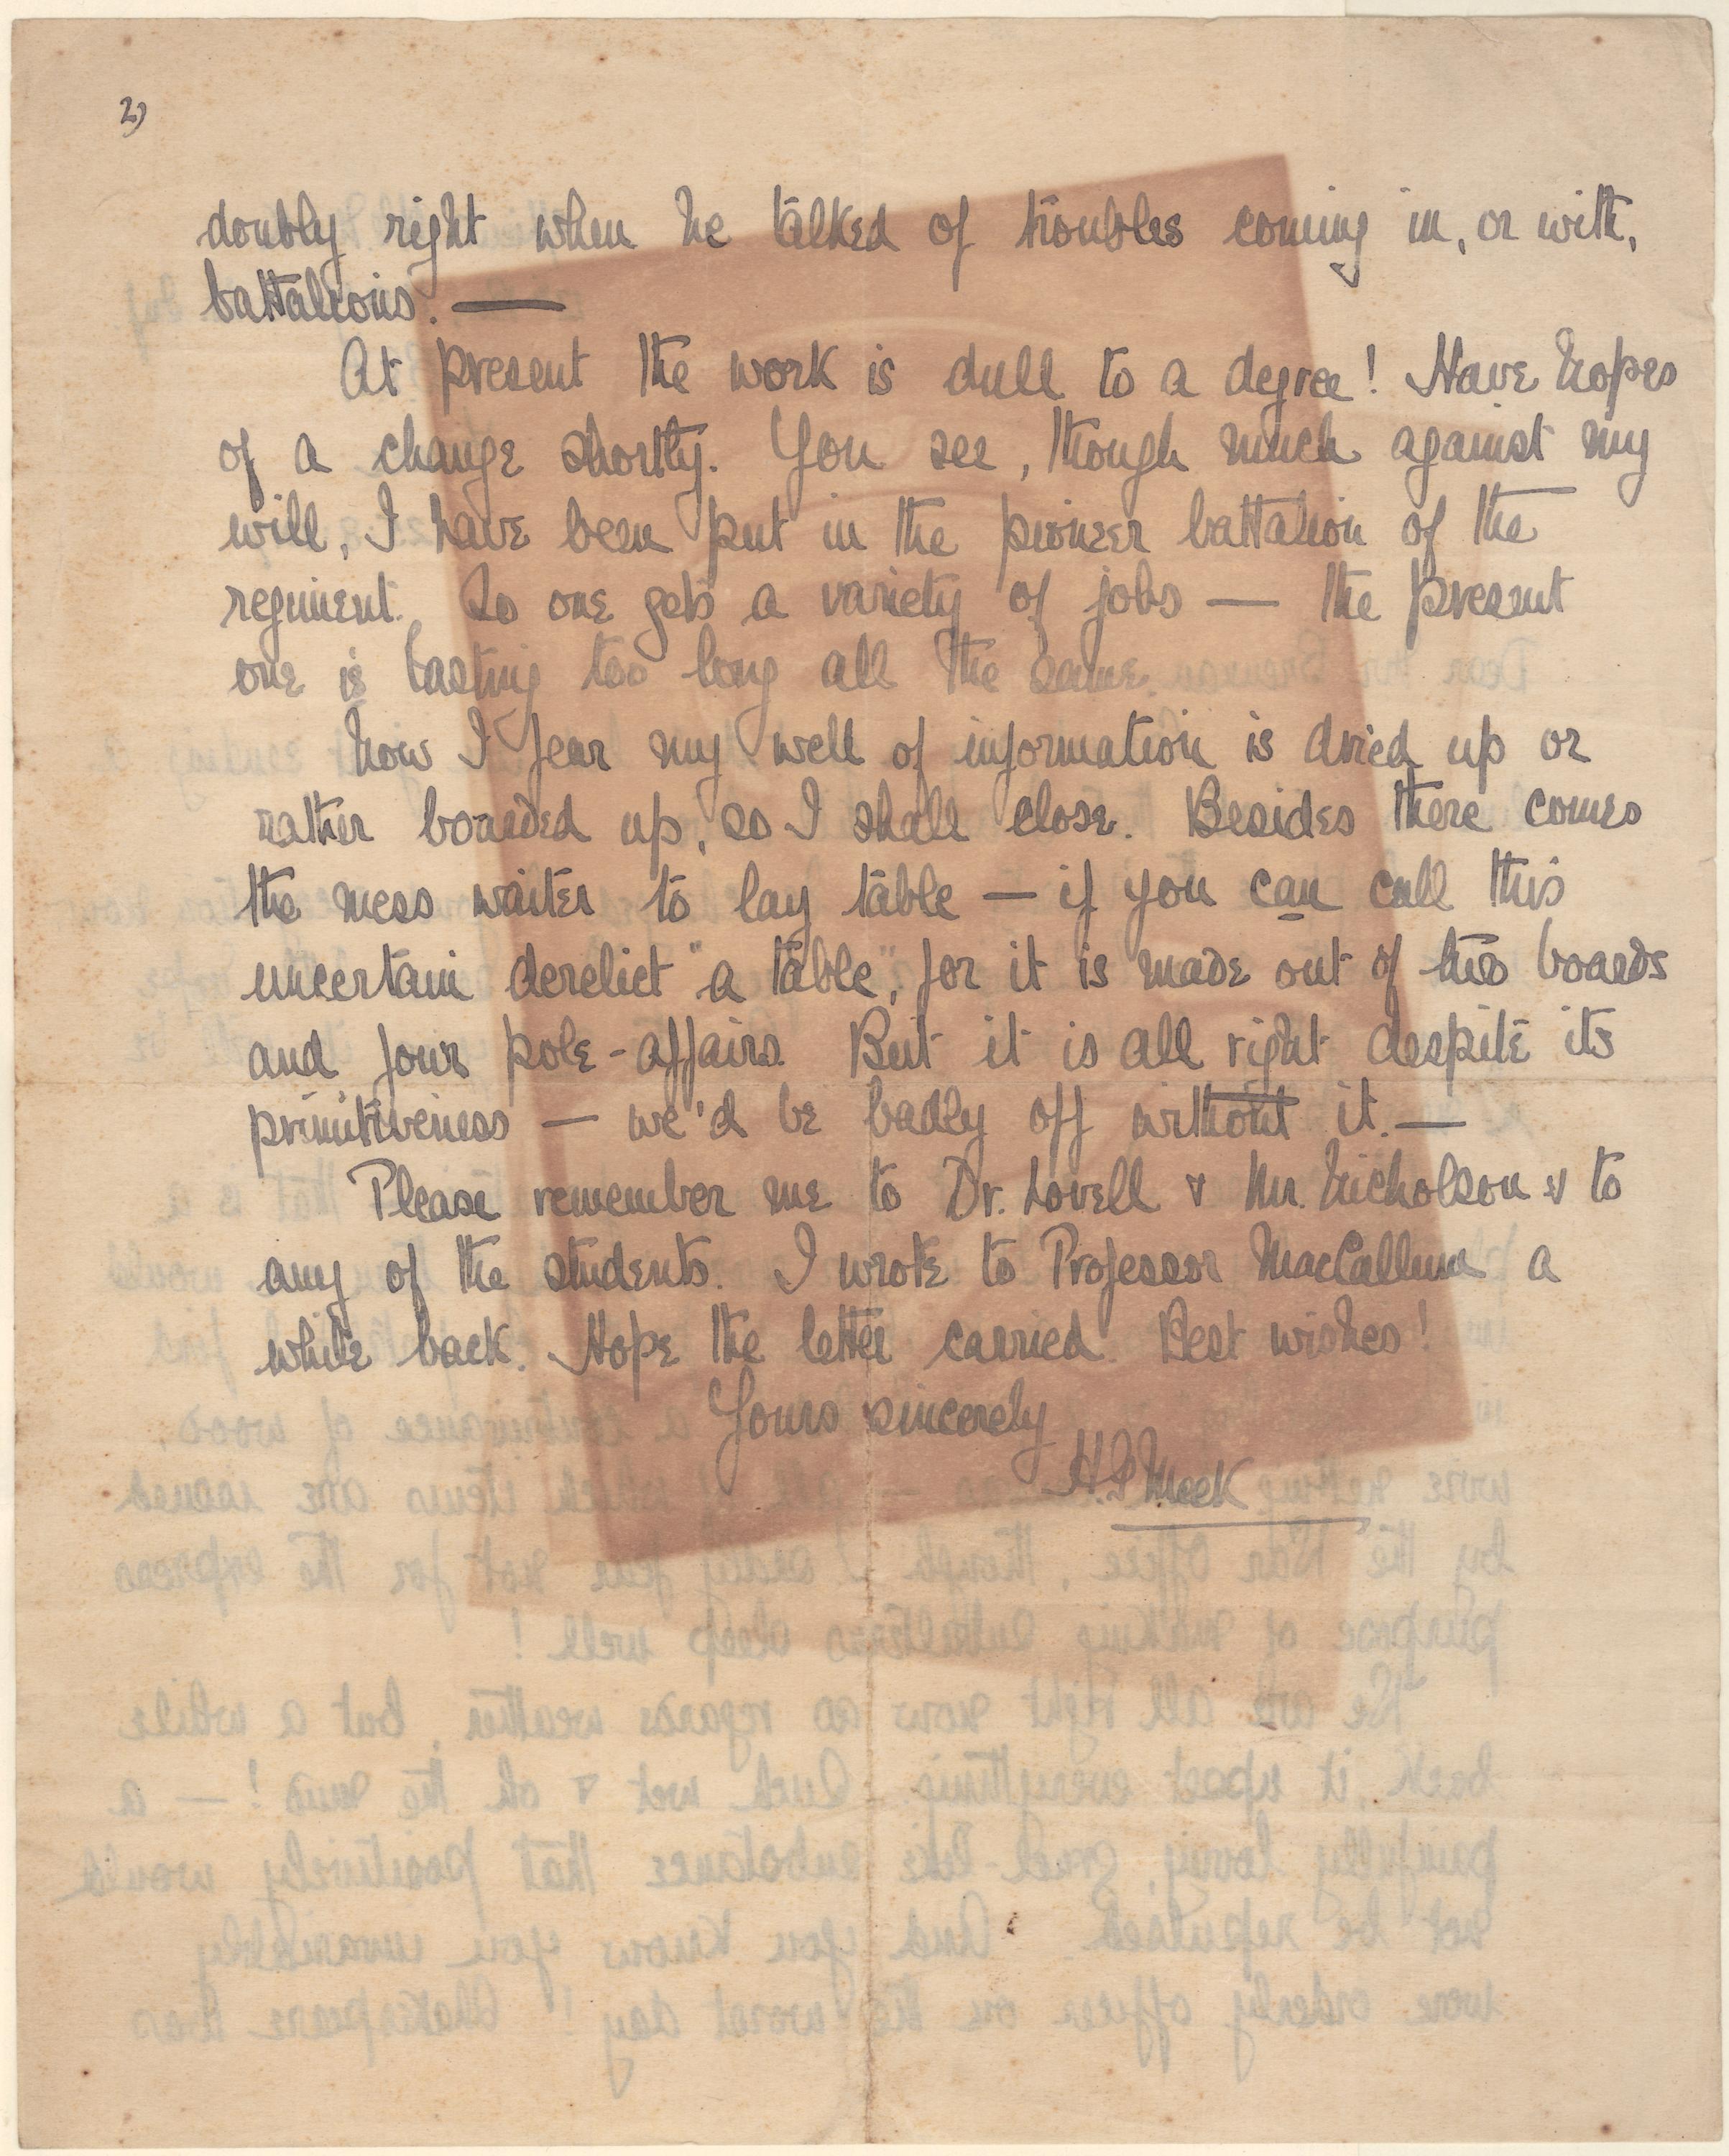 2)
doubly right when he talked of troubles coming in, or with,
battalions. —
At present the work is dull to a degree! Have hopes
of a change shortly. You see, though much against my
will, I have been put in the pioneer battalion of the
regiment. So one gets a variety of jobs — the present
one is lasting too long all the same.
Now I fear my well of information is dried up or
rather boarded up, so I shall close. Besides there comes
the mess waiter to lay table — if you can call this
uncertain derelict "a table", for it is made out of two boards
and four pole-affairs. But it is all right despite its
primitiveness — we'd be badly off without it. —
Please remember me to Dr. Lovell & Mr. Nicholson & to
any of the students. I wrote to Professor MacCallum a
while back. Hope the letter carried. Best wishes!
Yours sincerely
H.S. Meek